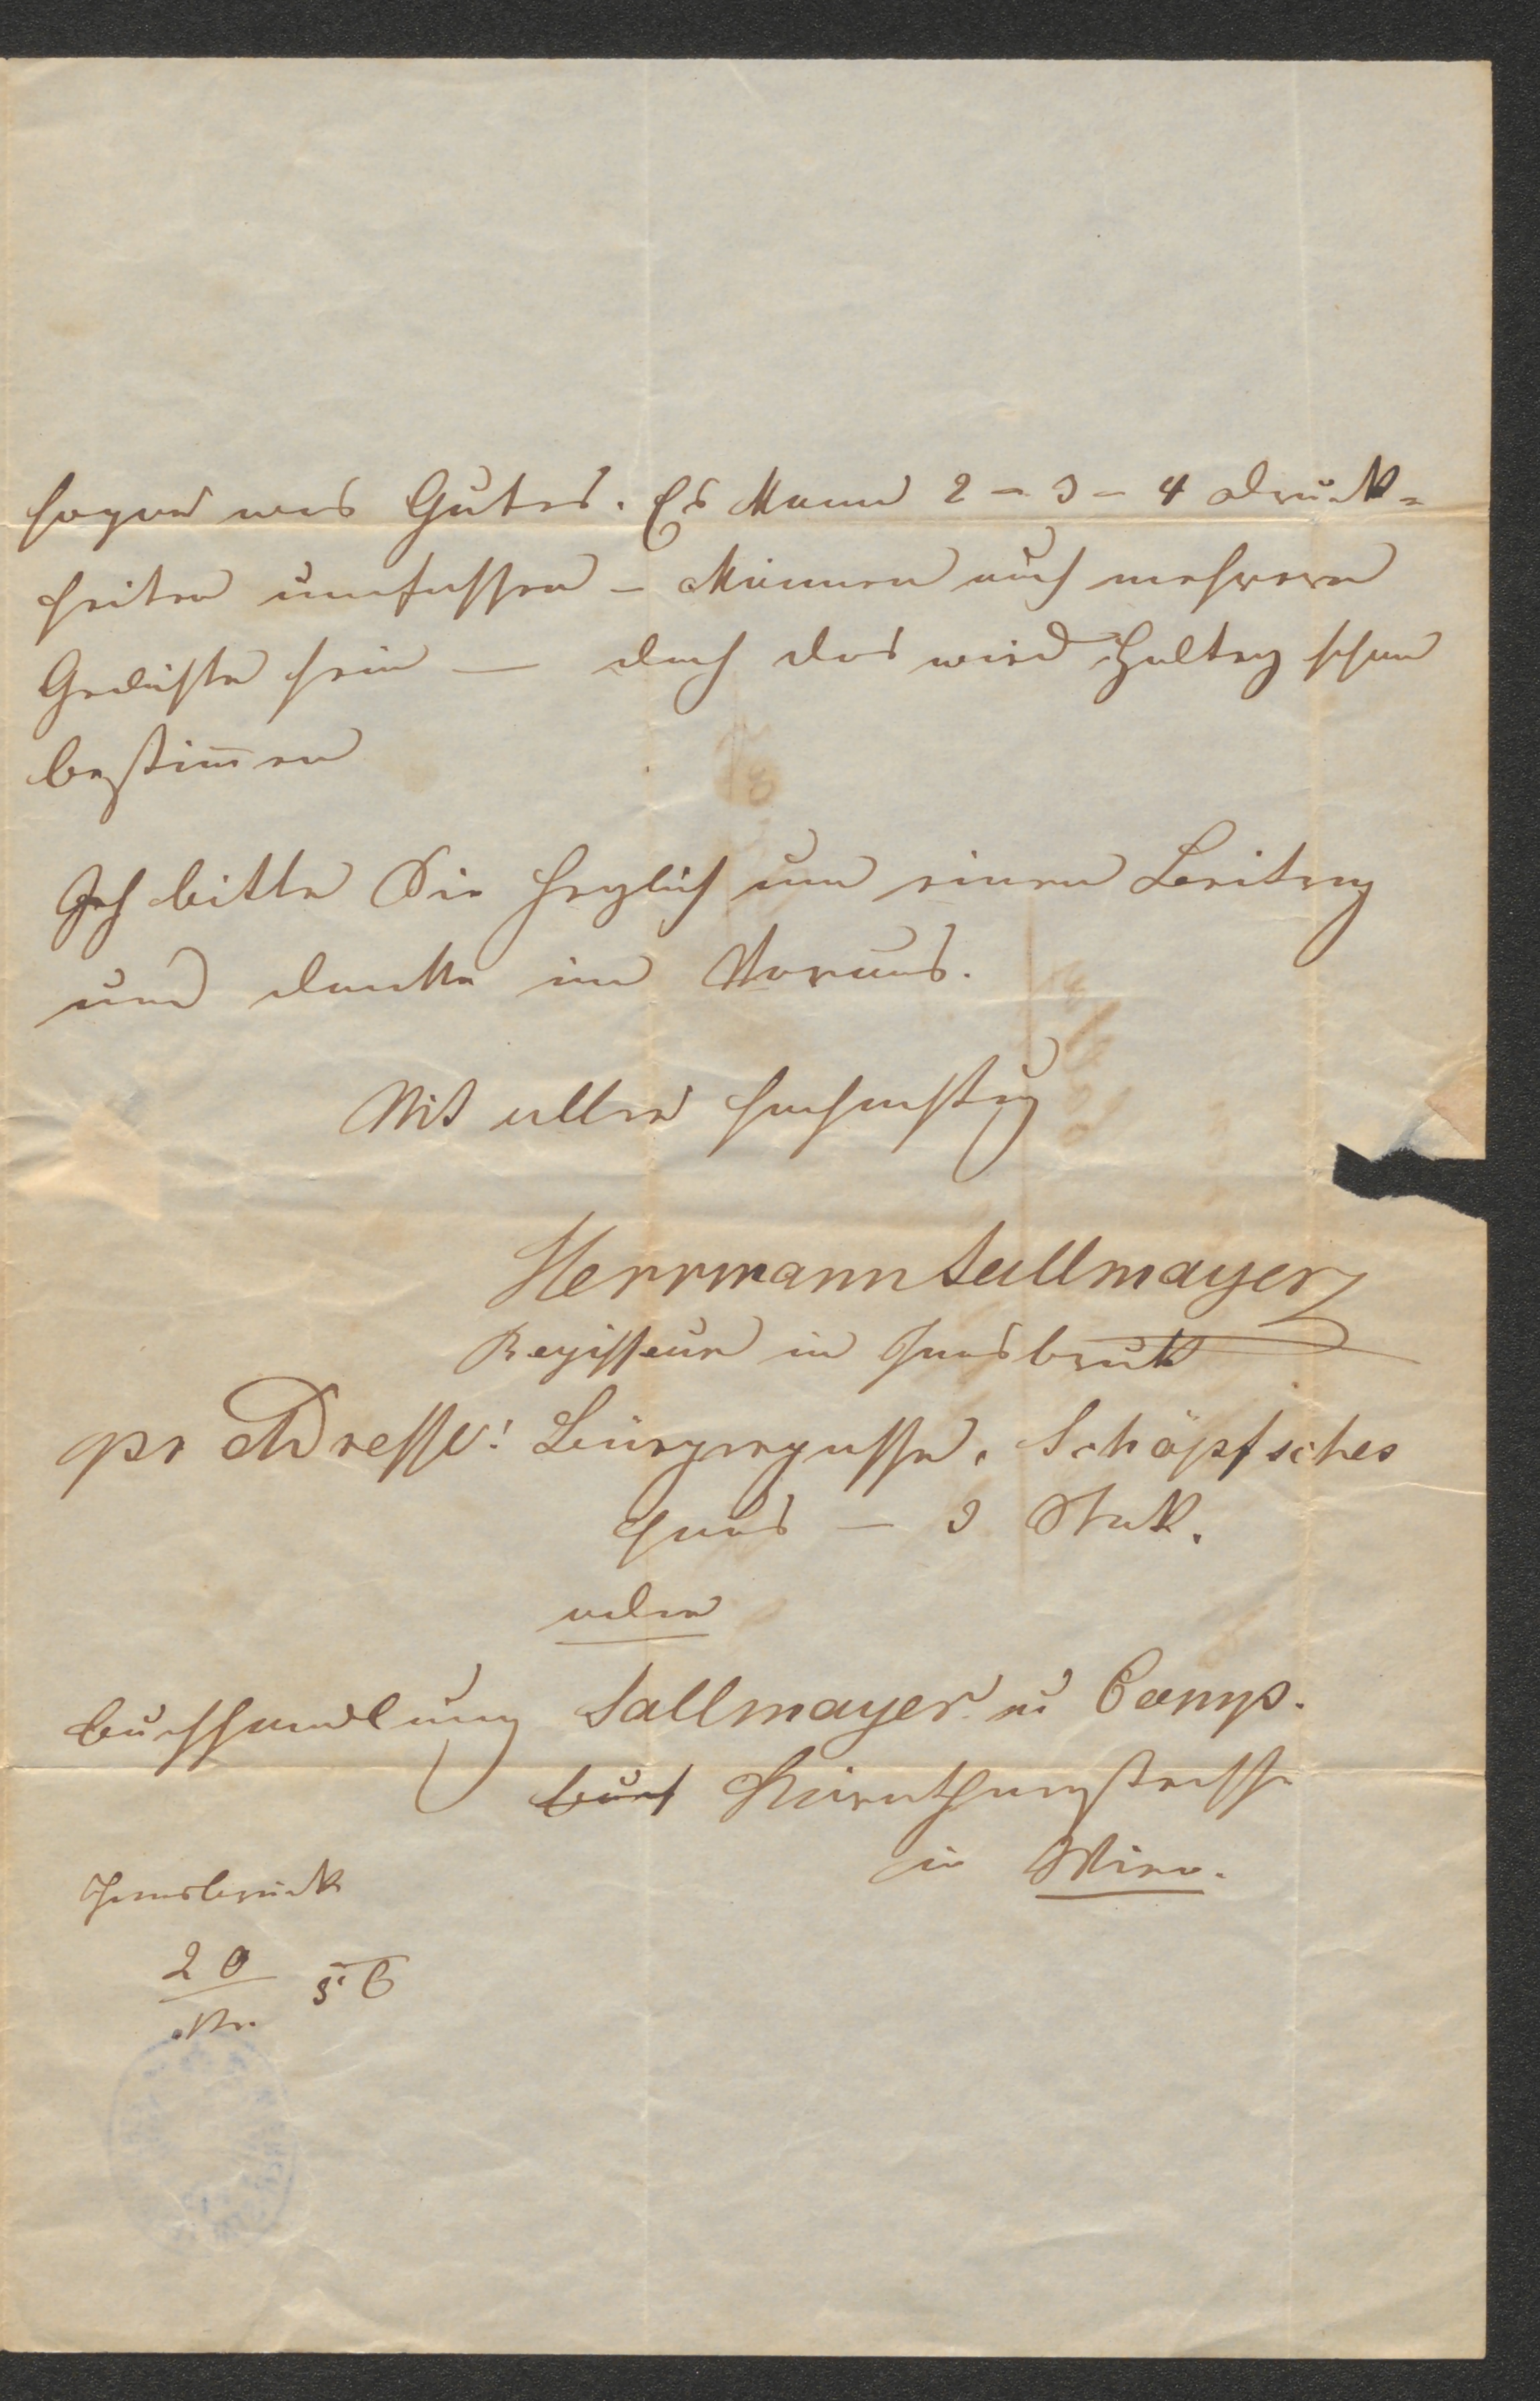 sogar was Gutes. Es kann 2 – 3 – 4 Druck=
seiten umfassen – können auch mehrere
Gedichte sein — doch das wird Holtey schon
bestimen
Ich bitte Sie herzlich um einen Beitrag
und danke im Voraus.
Mit aller Hochachtung
Herrmann Sallmayer
Regisseur in Innsbruk
pr Adresse: Bürgergasse. Schöpfsches
Haus – 3 Stok.
oder
Buchhandlung Sallmayer u Comp.
Kärnthnerstrasse
in Wien.
Innsbruck
20
56